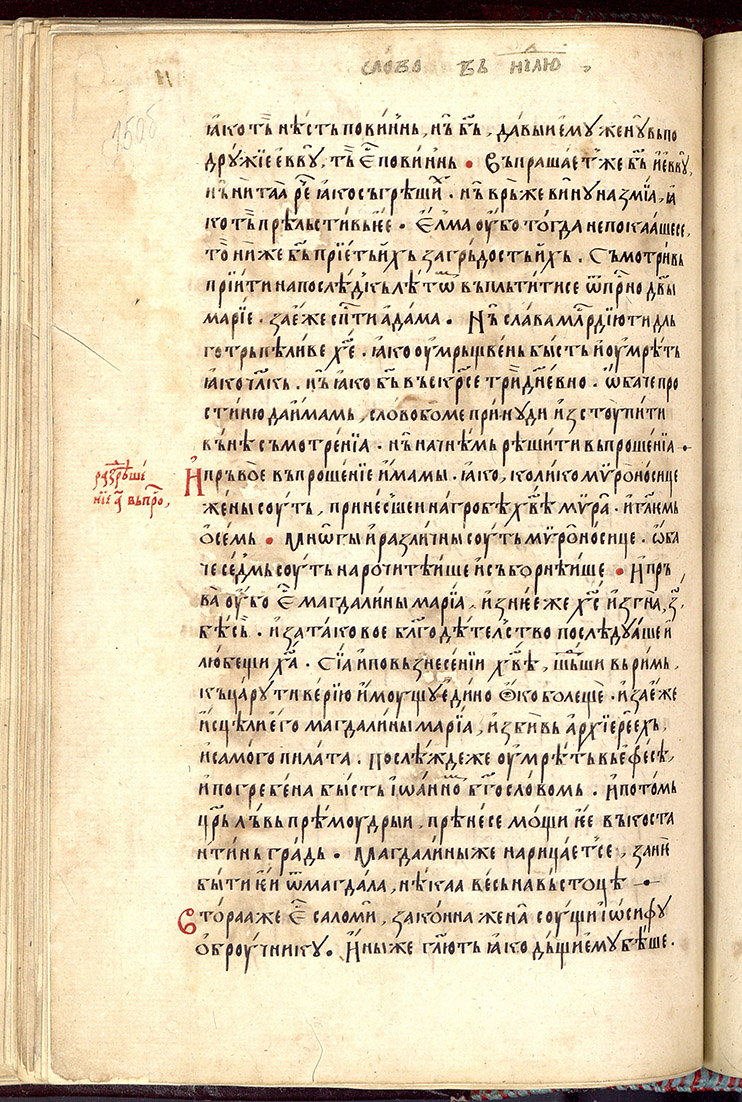 слово въ н҃лю
150б
ꙗ҆ко то҆ нѣ́сть пови́ннь, нъ̏ бъ҃, да́выи є҆мꙋ женꙋ̀ вьпо
дрꙋ́жїе є҆ѵвꙋ, тъ̏ є҆с҃ пови́ннь • Въпраша́ет же бъ҃ и҆ є҆ѵвꙋ,
и҆ ѡ҆ни та̏ ре҃ ꙗ҆ко съгрѣши́х. нъ̏ врь́же винꙋ̀ на змїа̀, ꙗ҆
ко то҆ прѣльсти́вь ю҆е. Є҆лма ᲂу҆́бо тогда̀ непокаꙗ́шесе,
то̏ ни́же бъ҃ прїе́ть и҆́хъ за грь́дость и҆́хъ. Съмотри́вь
прїи҆ти на послѣ́дꙸкь лѣ́тѡⷨ въпльти́тисе ѿ прⷭ҇но дв҃ы
марїе. за є҆́же сп҃ти а҆да́ма. Нъ̏ сла́ва млⷭ҇рдїю ти дль
готрьпѣли́ве хе҃. ꙗ҆ко ᲂу҆мрьщве́нь бы́сть и҆ ᲂу҆мрѣ́ть
ꙗ҆ко чл҃кь. нъ̏ ꙗ҆ко бъ҃ въскрⷭ҇се триⷣне́вно. ѡ҆баче про
сти́ню да и҆мамь, сло́во бо ме принꙋ́ди и҆зстоупи́ти
въ́не съмотре́нїа. нъ̏ на́чнѣмь рѣши́ти вьпроше́нїа •
разрѣше́нїе а҃ вьпро,
И҆ прьво́е въпроше́нїе и҆́мамы. ꙗ҆ко, коли́ко мѷроно́сице
жены̀ соу́ть, прине́сшеи на гробѣ̀ хв҃ѣ мѷ́ра. и҆ гл҃емь
ѻ҆́семь • Мнѡ́гы и҆ разли́чны соу́ть мѷроно́сице. ѡ҆ба
че се́дмь соу́ть нарочитѣ́ише и҆ съборнѣ́ише • И҆ прь
ва̀ ᲂу҆́бо є҆с҃ магдали́ны марїа, и҆з не́е же хс҃ и҆згна̀, з҃.
бѣ́сь. и҆ за тако́вое бл҃годѣ́телство послѣ́дꙋꙗше и҆
лю́бещи ха҃. Сїа̀ и҆ по възнесе́нїи хв҃ѣ, шьⷣши вь ри́мь,
къ ца́рꙋ тиве́рїю и҆мꙋщꙋ є҆ди́но ѻ҆́ко боле́ще. и҆ за є҆́же
и҆сцѣли̏ є҆го̀ магдали́ны марїа, и҆зби̏ въ а҆рхїере́ехь,
и҆ самого̀ пила́та. Послѣ́жде же ᲂу҆мрѣ́ть въ є҆фе́сѣ,
и҆ погребе́на бы́сть і҆ѡа҆нноⷨ бг҃осло́вомь. И҆ пото́мь
цр҃ь ль́вь прѣмоу́дрыи, прѣне́се мо́щи є҆е вь коста
нти́нь гра́дь. Магдали́ны же нарица́етсе, за́нѥ
бы́ти є҆и ѿ магда́ла, нѣ́каа ве́сь на въсто́цѣ
Вто́раа же є҆с҃ саломи̏, зако́нна жена̀ соу́щи і҆ѡ́сифꙋ
ѻ҆броу́чникꙋ. И҆ны́ же гл҃ють ꙗ҆ко дъ́щи є҆мꙋ бѣ́ше.